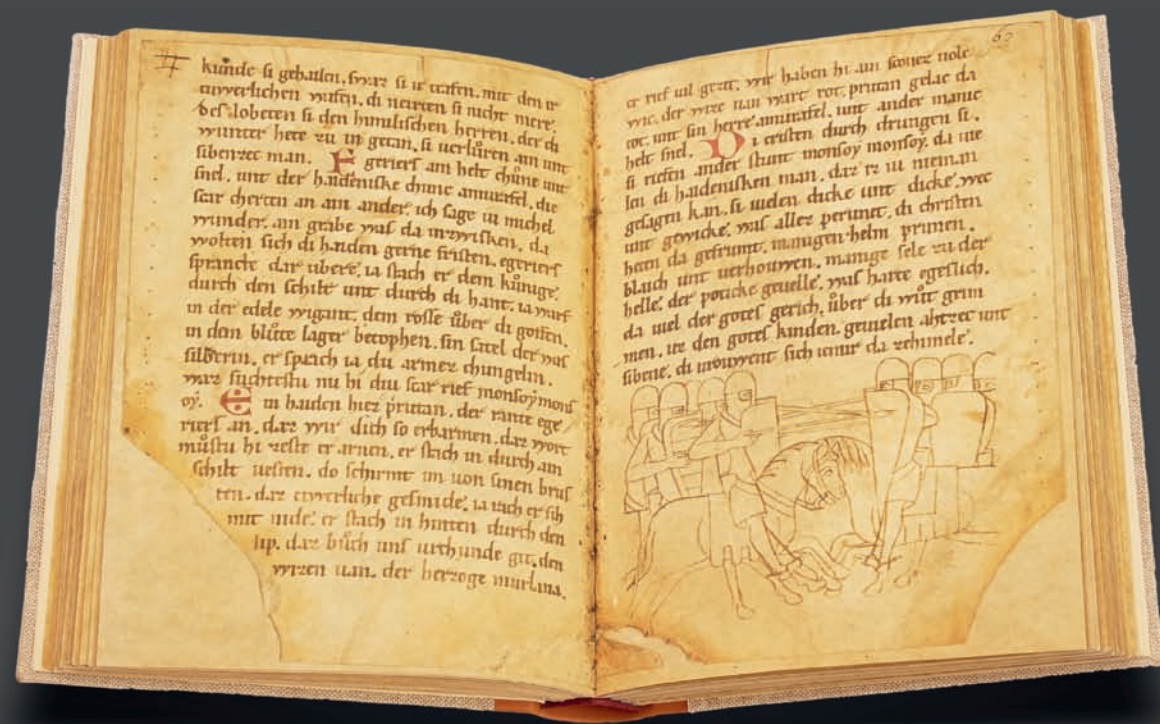 kunde si gehailen. swaz si ir trafen. mit den ir
cuwerlichen wafen. di nerten si nicht mere.
des lobeten si den himilischen herren. der di
wunter hete zu in getan. si uerlůren ain unt
sibenzec man. Egeriers ain helt chůne unt
snel. unt der haideniske chunc amurafel. die
scar cherten an ain ander. ich sage iu michel
wunder. ain grabe was da inzwisken. da
wolten sich di haiden gerne fristen. egeriers
sprancte dar ubere. ia stach er dem kůnige.
durch den schilt unt durch di hant. ia warf
in der edele wigant. dem rosse ůber di goffen.
in dem blůte lager betophen. sin satel der was
silberin. er sprach ia du armez chungelin.
waz suchtestu nu hi diu scar rief monsoy mons
oy. Ein haiden hiez prutan. der rante ege
riers an. daz wir dich so erbarmen. daz wort
můstu hi zeste er arnen. er stach in durch ain
schilt uesten. do schirmt im uon sinen brus
ten. daz cuwerliche gesmide. ia rach er sih
mit nide. er stach in hinten durch den
lip. daz bůch uns urchunde git. den
wizen uan. der herzoge murlana.
er rief uil gezit. wir haben hi ain sconez uole
wic. der wize uan wart rot. prutan gelac da
tot. unt sin herre amurafel. unt ander manic
helt snel. Di cristen durch drungen si.
si riefen ander stunt monsoy monsoy. da uie
len di haidenisken man. daz ez iu nieman
gesagen kan. si uielen dicke unt dicke. wec
unt gewicke. was allez perunet. di christen
heten da gefrumt. manigen helm prunen.
blaich unt uerhouwen. manige sele zu der
helle. der poticke geuelle. was harte egeslich.
da uiel der gotes gerich. ůber di wůt grim
men. uz den gotes kinden. geuielen ahtzec unt
sibene. di urouwent sich iemir da zehimele.